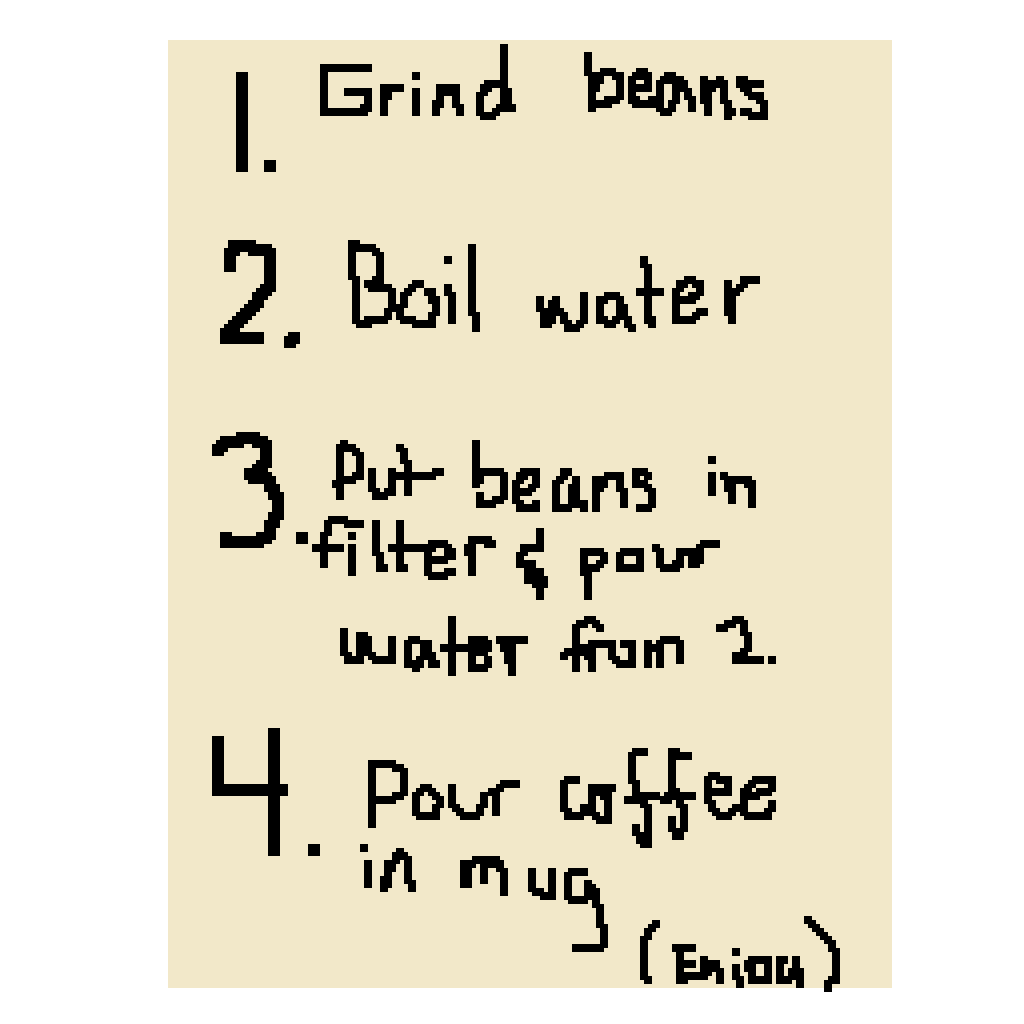 1. Grind beans
2. Boil water
3. Put beans in
filter & pour
water from 2.
4. Pour coffee
in mug
(Enjoy)